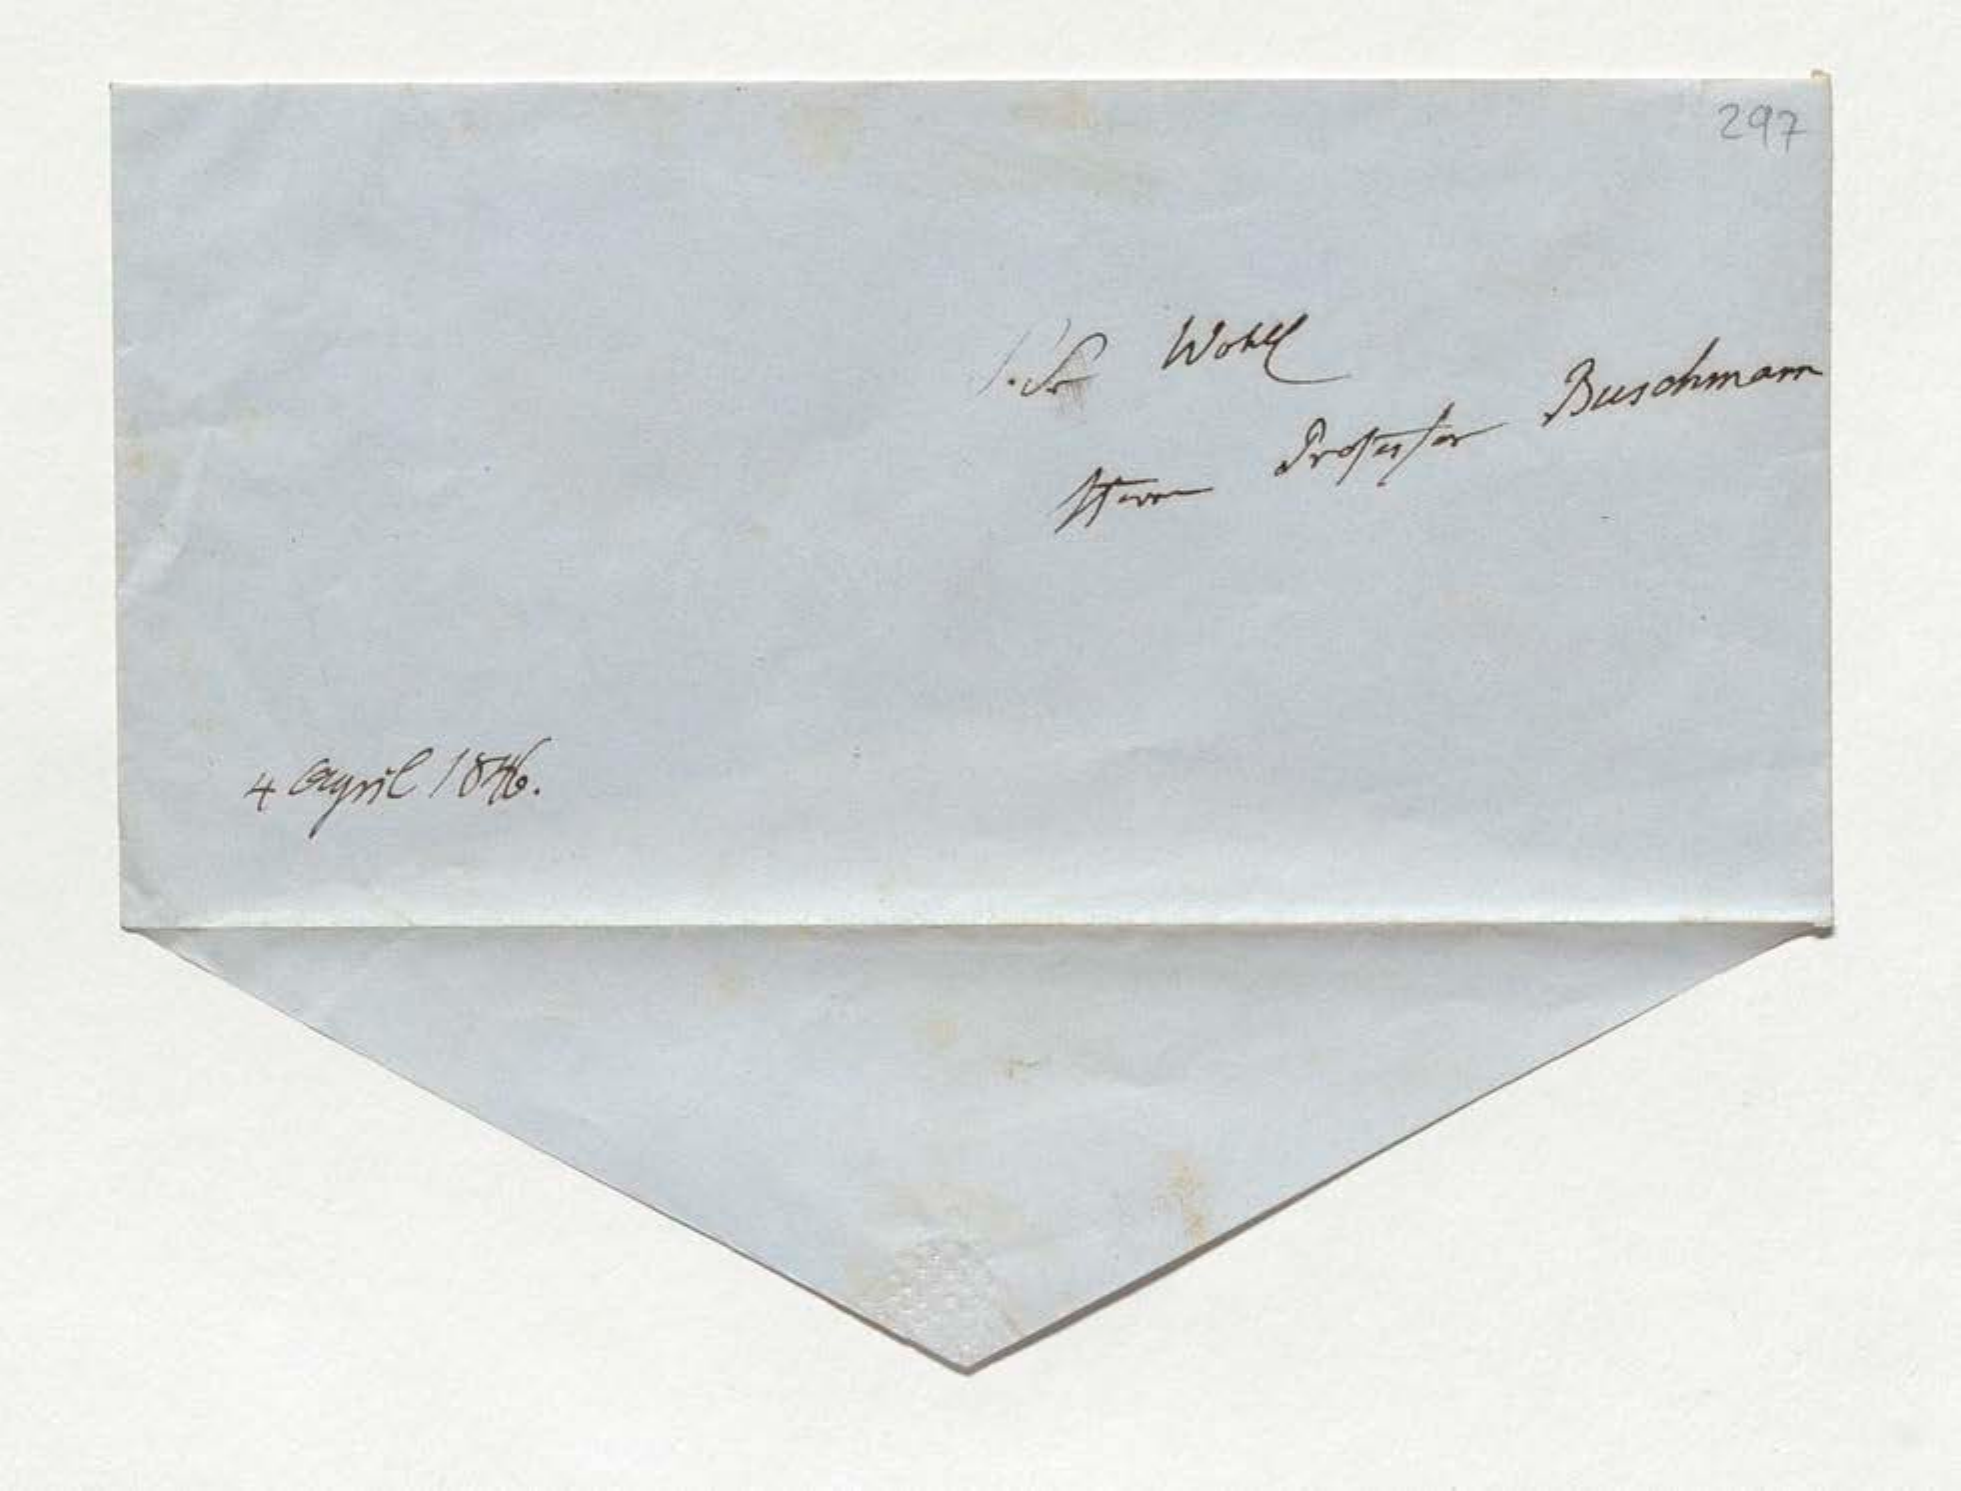 297
Wohl
Herrn Professor Buschmann
4 April 1846.